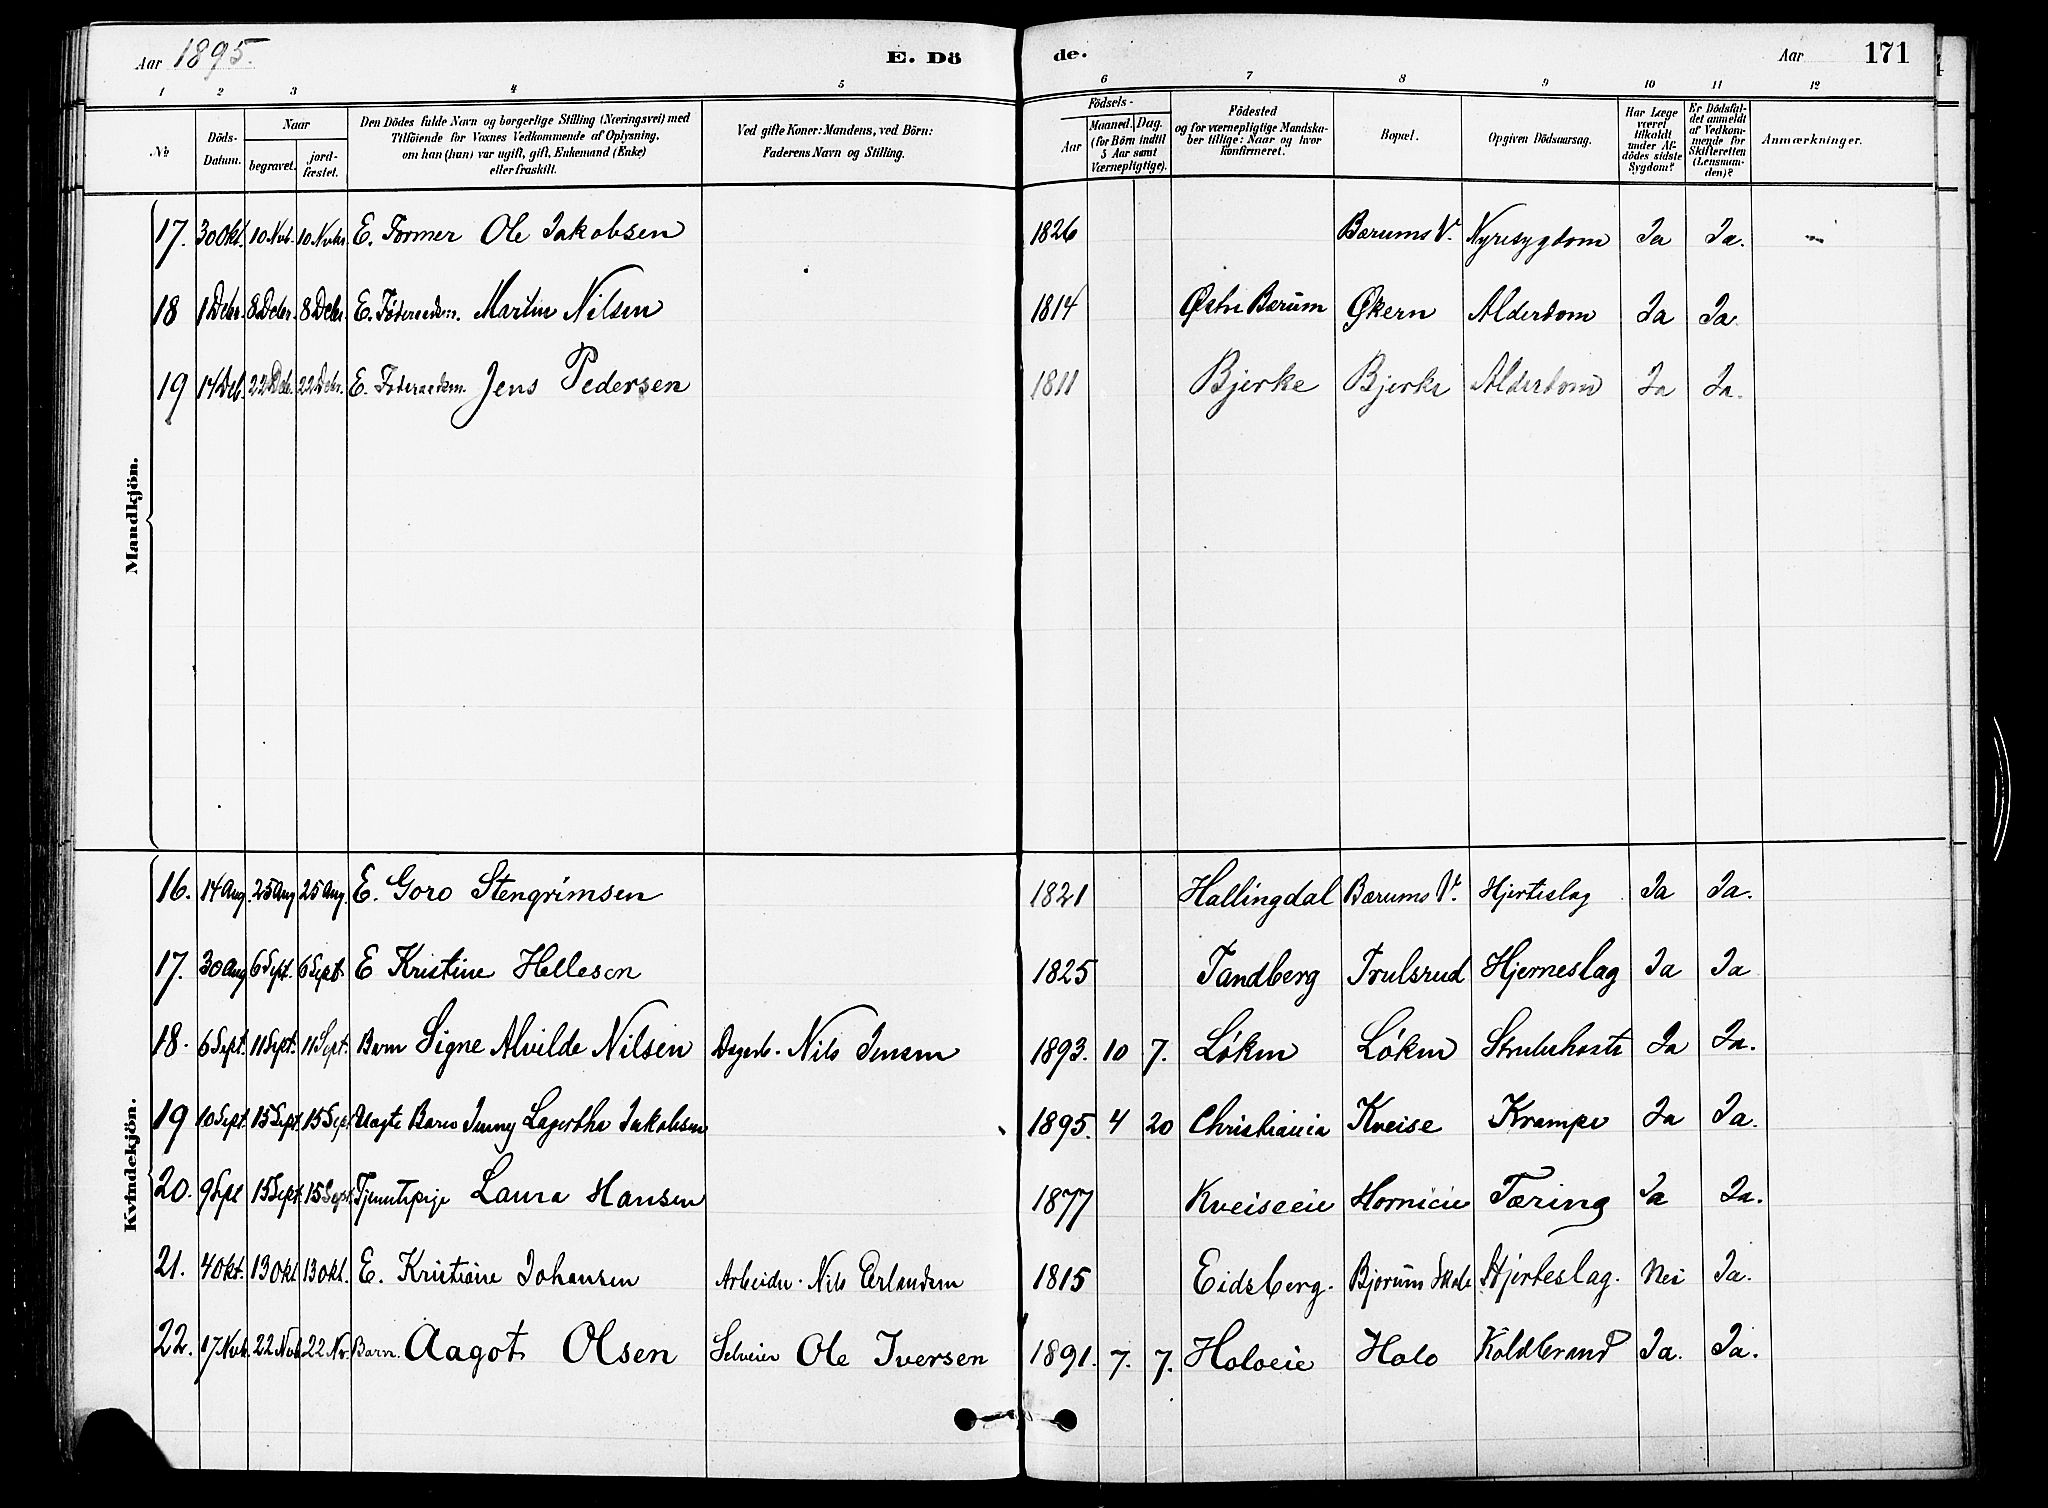 Aar 1895.
E. Dö
de.
Aar
171
1 2 3 4 5 6 7 8 9 10 11 12
№
Döds-Datum.
Naar
begravet.
jord-fæstet.
Den Dödes fulde Navn og borgerlige Stilling (Næringsvei) med
Tilföiende for Voxnes Vedkommende af Oplysning,
om han (hun) var ugift, gift, Enkemand (Enke)
eller fraskilt.
Ved gifte Koner: Mandens, ved Börn:
Faderens Navn og Stilling.
Födsels-
Aar
Maaned. Dag.
(for Börn indtil
5 Aar samt
Værnepligtige).
Födested
og for værnepligtige Mandska-
ber tillige: Naar og hvor
konfirmeret.
Bopæl.
Opgiven Dödsaarsag.
Har Læge
været
tilkaldt
under Af-
dödes sidste
Sygdom?
Er Dödsfal-
det anmeldt
af Vedkom-
mende for
Skifteretten
(Lensman-
den)?
Anmærkninger.
Mandkjön.
17. 30 Okt. 10 Nvb. 10 Nvbr E. Former Ole Jakobsen 1826 Bærums V. Nyresygdom Ja Ja.
18 1 Debr. 8 Debr. 8 Debr. E. Föderaadsm. Martin Nilsen 1814 Østre Bærum Økern Alderdom Ja Ja.
19 14 Deb. 22 Deb. 22 Debr. E. Föderaadsm. Jens Pedersen 1811 Bjerke Bjerke Alderdom Ja Ja.
Kvindekjön.
16. 14 Aug. 25 Aug 25 Aug. E. Goro Stengrimsen 1821 Hallingdal Bærums V. Hjerteslag Ja Ja.
17. 30 Aug 6 Sept. 6 Sept. E Kristine Hellesen 1825 Tandberg Trulsrud Hjerneslag Ja Ja
18. 6 Sept. 11 Sept. 11 Sept. Barn Signe Alvilde Nilsen Dagarb. Nils Jensen 1893. 10 7. Løken Løken Strubehoste Ja Ja.
19 10 Sept. 15 Sept. 15 Sept Uægte Barn Jenny Lagertha Jakobsen 1895. 4 20 Christiania Kveise Krampe Ja Ja.
20. 9 Spt 15 Sept. 15 Sept. Tjenestepige Laura Hansen 1877 Kveiseeie Hornieie Tæring Ja Ja.
21. 4 Okt. 13 Okt 13 Okt. E. Kristiane Johansen Arbeider Nils Erlandsen 1815 Eidsberg. Bjorum Skole Hjerteslag. Nei Ja.
22. 17 Nvb. 22 Nvb 22 Nv. Barn. Aagot Olsen Selveier Ole Iversen 1891. 7. 7. Holoeie Holo Koldbrand Ja. Ja.